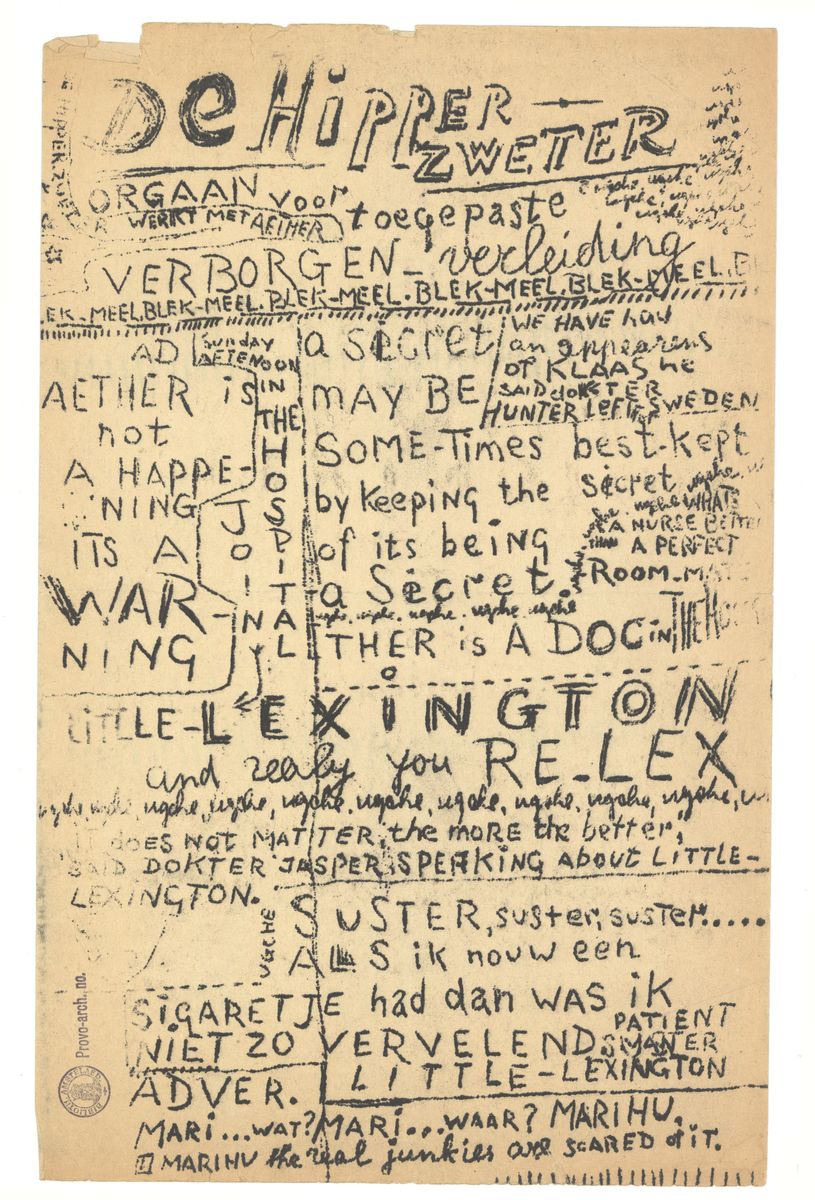 De HippER-
ZWETTER
ORGAAN voor
WERKT MET AETHER
toegepaste
VERBORGEN-verleiding
EK-MEEL.BLEK-MEEL.BLEK-MEEL.BLEK-MEEL.BLEK-MEEL.B
AD
AETHER is
not
A HAPPE-
NING
ITS A
WAR-
NING
SUNDAY
AFTENOON
IN
THE
HOSPITAL
JOIN
a secret
MAY BE
SOME-Times best-kept
by keeping the secret
of its being
a Secret.
WE HAVE had
an appearens
OF KLAAS he
SAID doKTER
HUNTER LEFT SWEDEN
WHATS
A NURSE BETTER
THAN A PERFECT
ROOM-MATE
ugche. ugche. ugche. ugche
THER is A DOC in THE HOUSE
LITTLE-LEXINGTON
and realy you RE-LEX
ugche, ugche, ugche, ugche, ugche, ugche, ugche, ugche, ugche
"IT DOES NOT MATTER, the MORE the better",
SAID DOKTER JASPER SPEAKING ABOUT LITTLE-
LEXINGTON.
UGCHE
SUSTER, suster, suster.....
ALS ik nouw een
SIGARETJE had dan WAS iK
NIET ZO VERVELEND
PATIENT
SMANER
LITTLE-LEXINGTON
ADVER.
MARI...WAT? MARI...WAAR? MARIHU.
MARIHU the real junkies are SCARED of IT.
Provo-arch. no.